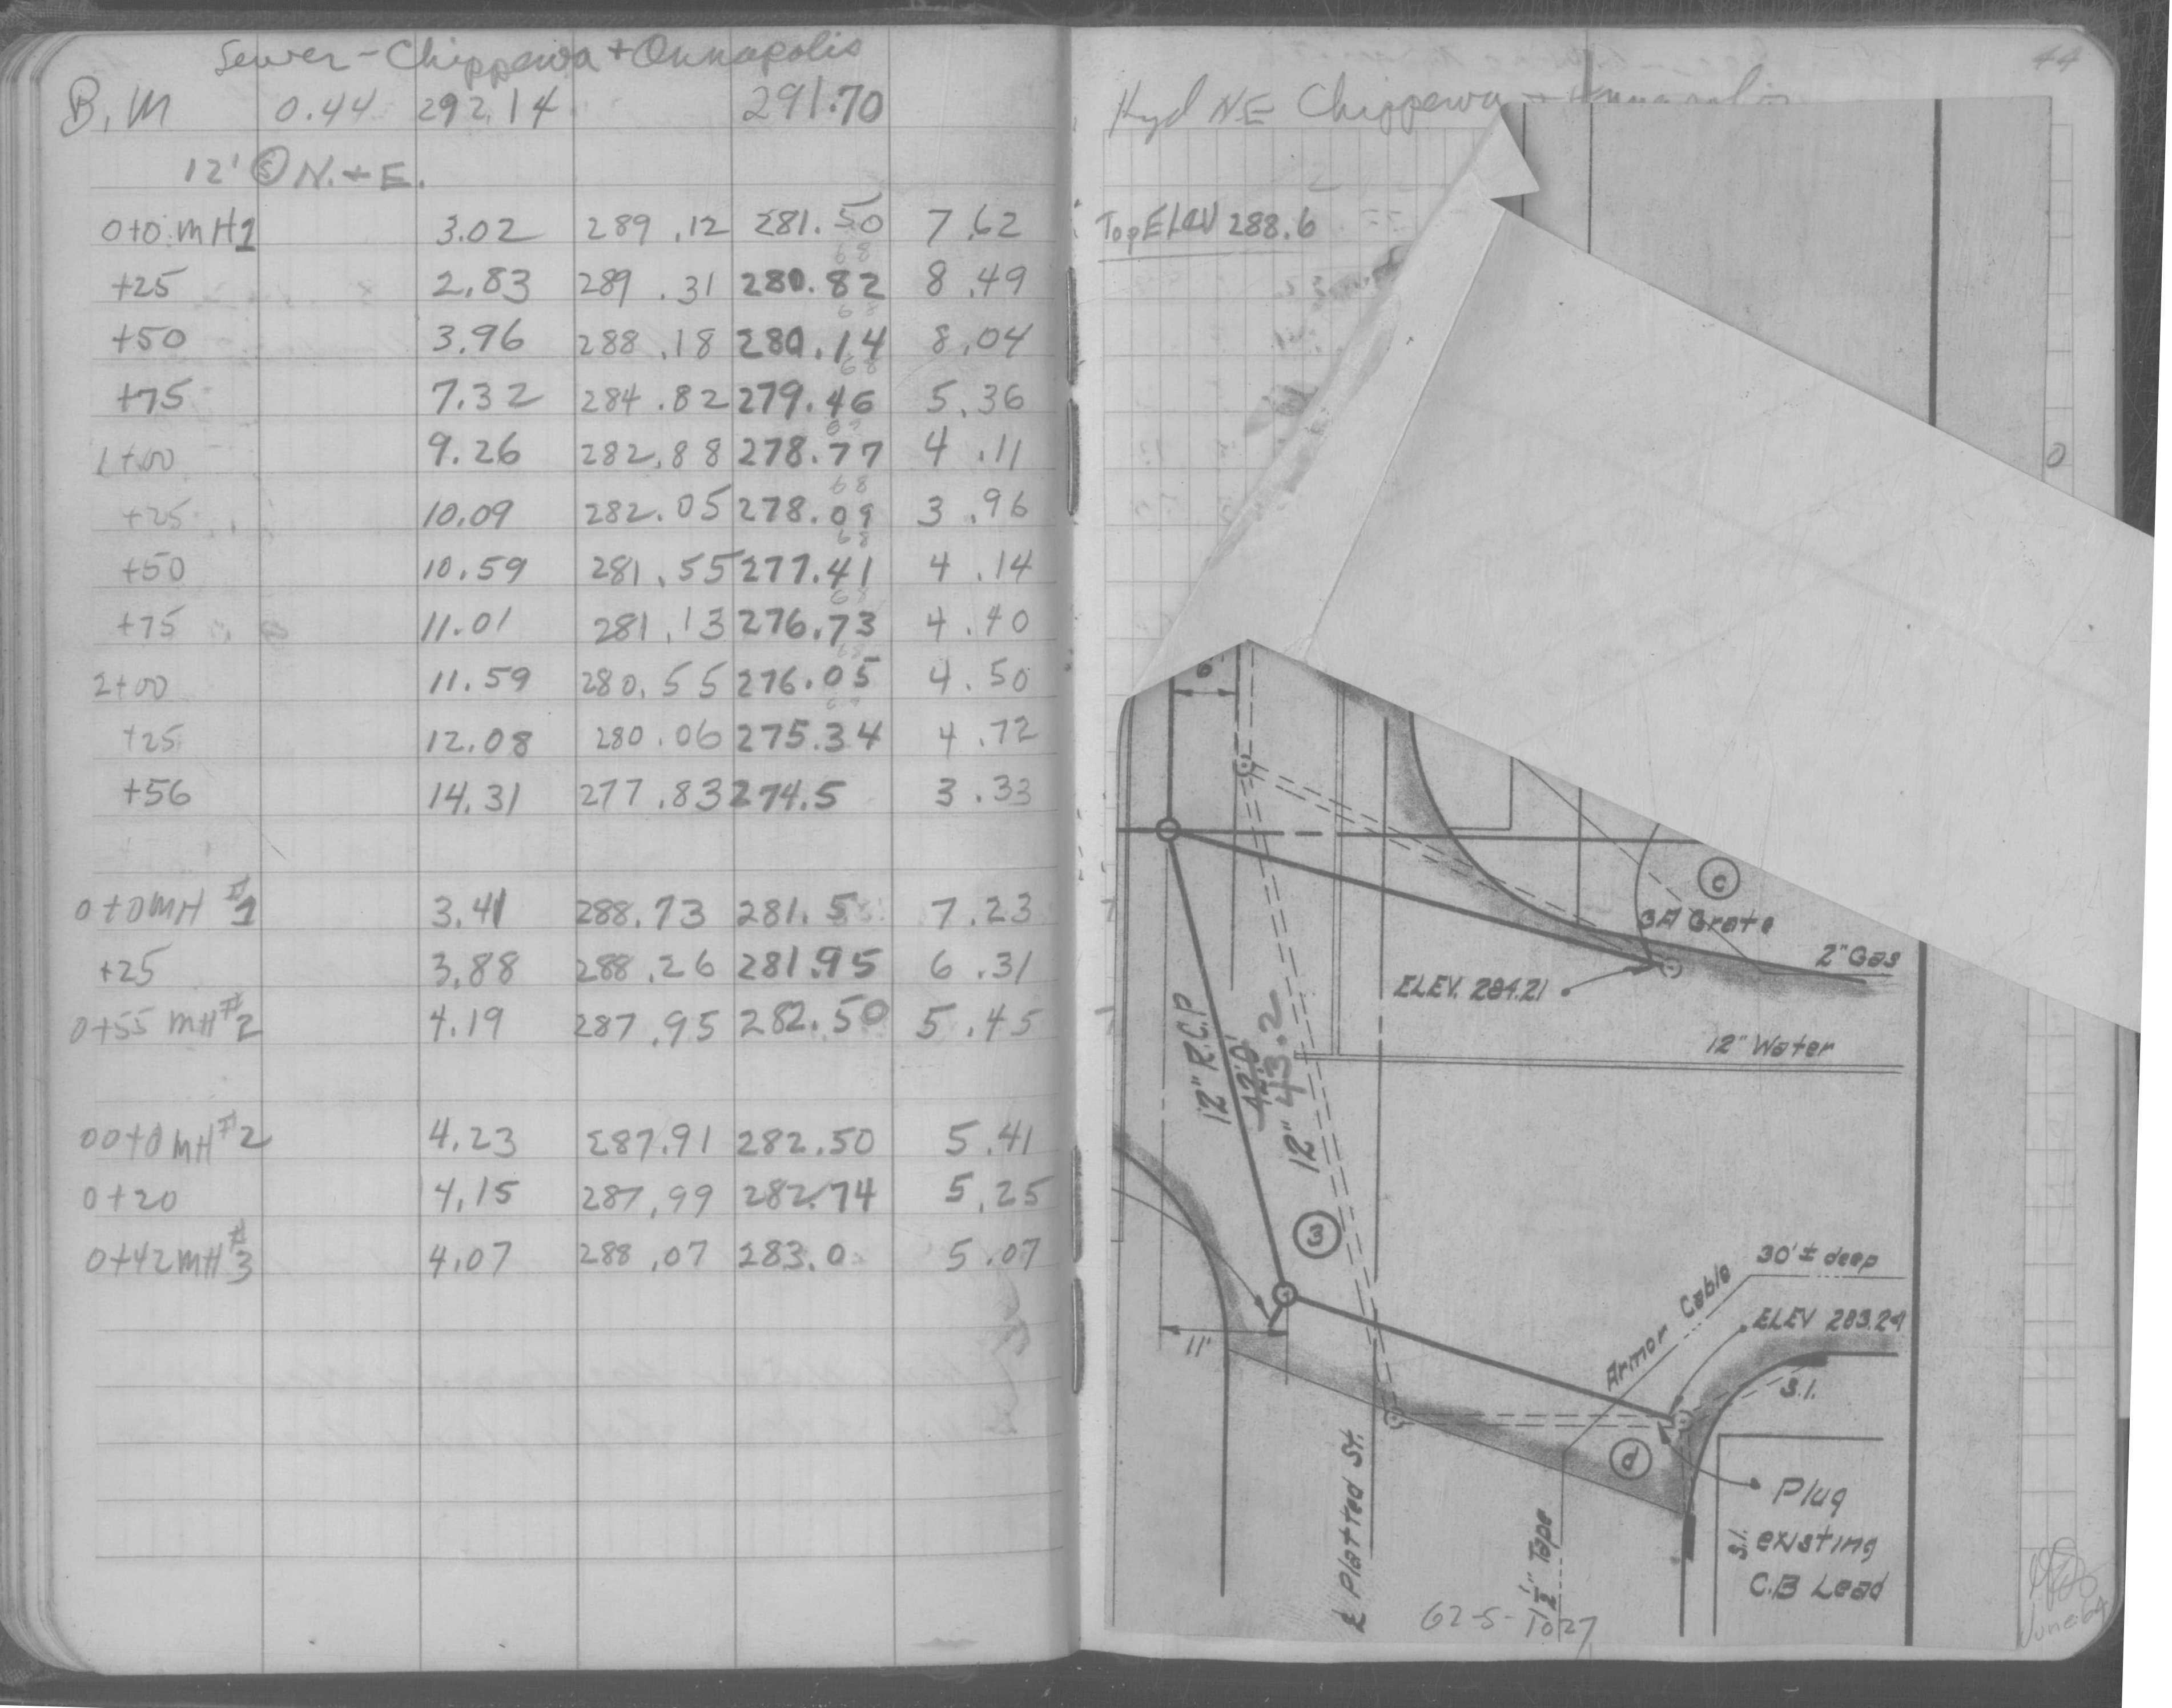 Sewer - Chippewa + Onnapolis
B.M 0.44 292.14 291.70
12' Ⓢ N. + E.
0+0 MH1 3.02 289.12 281.50 7.62
68
+25 2.83 289.31 280.82 8.49
68
+50 3.96 288.18 280.14 8.04
68
+75 7.32 284.82 279.46 5.36
69
1+00 9.26 282.88 278.77 4.11
68
+25 10.09 282.05 278.09 3.96
68
+50 10.59 281.55 277.41 4.14
68
+75 11.01 281.13 276.73 4.40
68
2+00 11.59 280.55 276.05 4.50
+25 12.08 280.06 275.34 4.72
+56 14.31 277.83 274.5 3.33
0+0 MH #1 3.41 288.73 281.5 7.23
+25 3.88 288.26 281.95 6.31
0+55 MH #2 4.19 287.95 282.50 5.45
00+0 MH #2 4.23 287.91 282.50 5.41
0+20 4.15 287.99 282.74 5.25
0+42 MH #3 4.07 288.07 283.0 5.07
44
Hyd N.E Chippewa
Top ELEV 288.6
0
6'
c
3A Grate
2" Gas
ELEV. 284.21
12" Water
12" R.C.P
42.0'
12" 43.2
3
30'± deep
Armor Cable
ELEV 283.24
11'
S.I.
d
Plug
existing
C.B Lead
S.I.
℄ Platted St.
1½" Tape
62-5-10/27
June 64